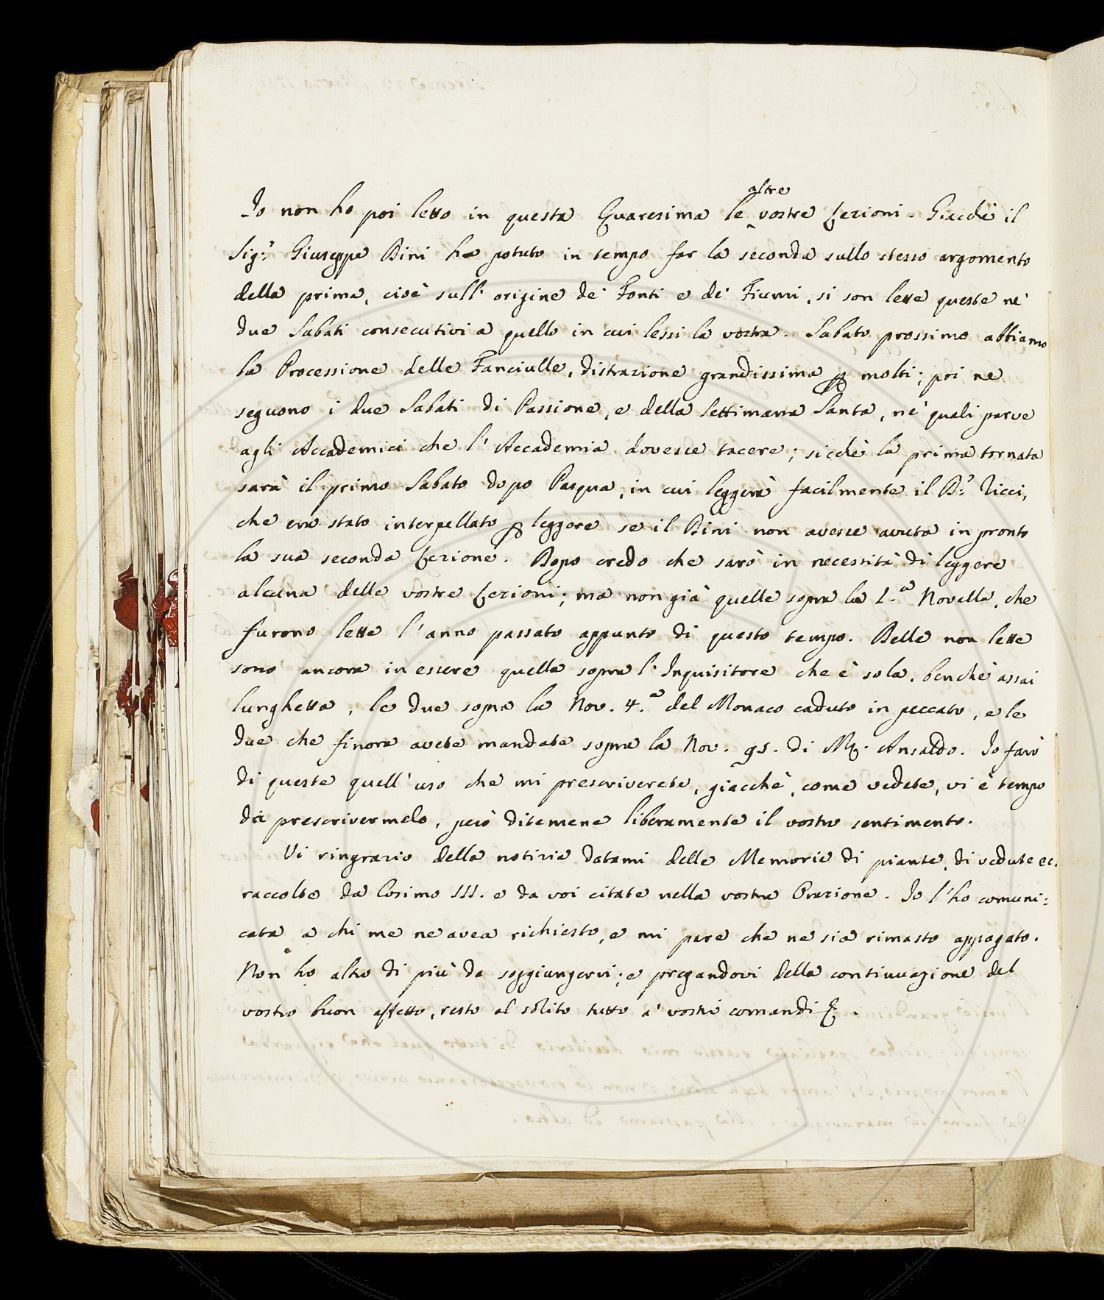 altre
Io non ho poi letto in questa Quaresima le vostre Lezioni. Giacchè il
Sig.r Giuseppe Bini ha potuto in tempo far la seconda sullo stesso argomento
della prima, cioè sull'origine de' Fonti e de' Fiumi, si son lette queste ne'
due Sabati consecutivi a quello in cui lessi la vostra. Sabato prossimo abbiamo
la Processione delle Fanciulle, distrazione grandissima p molti; poi ne
seguono i due Sabati di Passione, e della Settimana Santa, ne' quali parve
agli Accademici che l'Accademia dovesse tacere; sicchè la prima tornata
sarà il primo Sabato dopo Pasqua, in cui leggerà facilmente il D.r Ricci,
che era stato interpellato p leggere se il Bini non avesse avuta in pronto
la sua seconda Lezione. Dopo credo che sarò in necessità di leggere
alcuna delle vostre Lezioni; ma non già quelle sopra la 1.a Novella, che
furono lette l'anno passato appunto di questo tempo. Delle non lette
sono ancora in essere quella sopra l'Inquisitore che è sola, benchè assai
lunghetta, le due sopra la Nov. 4.a del Monaco caduto in peccato, e le
due che finora avete mandate sopra la Nov. 95. di M. Ansaldo. Io farò
di queste quell'uso che mi prescriverete, giacchè, come vedete, vi è tempo
da prescrivermelo, però ditemene liberamente il vostro sentimento.
Vi ringrazio della notizia datami delle Memorie di piante, di vedute ec.
raccolte da Cosimo III. e da voi citate nella vostra Orazione. Io l'ho comuni=
cata a chi me ne avea richiesto, e mi pare che ne sia rimasto appagato.
Non ho altro di più da soggiungervi; e pregandovi della continuazione del
vostro buon affetto, resto al solito tutto a' vostri comandi